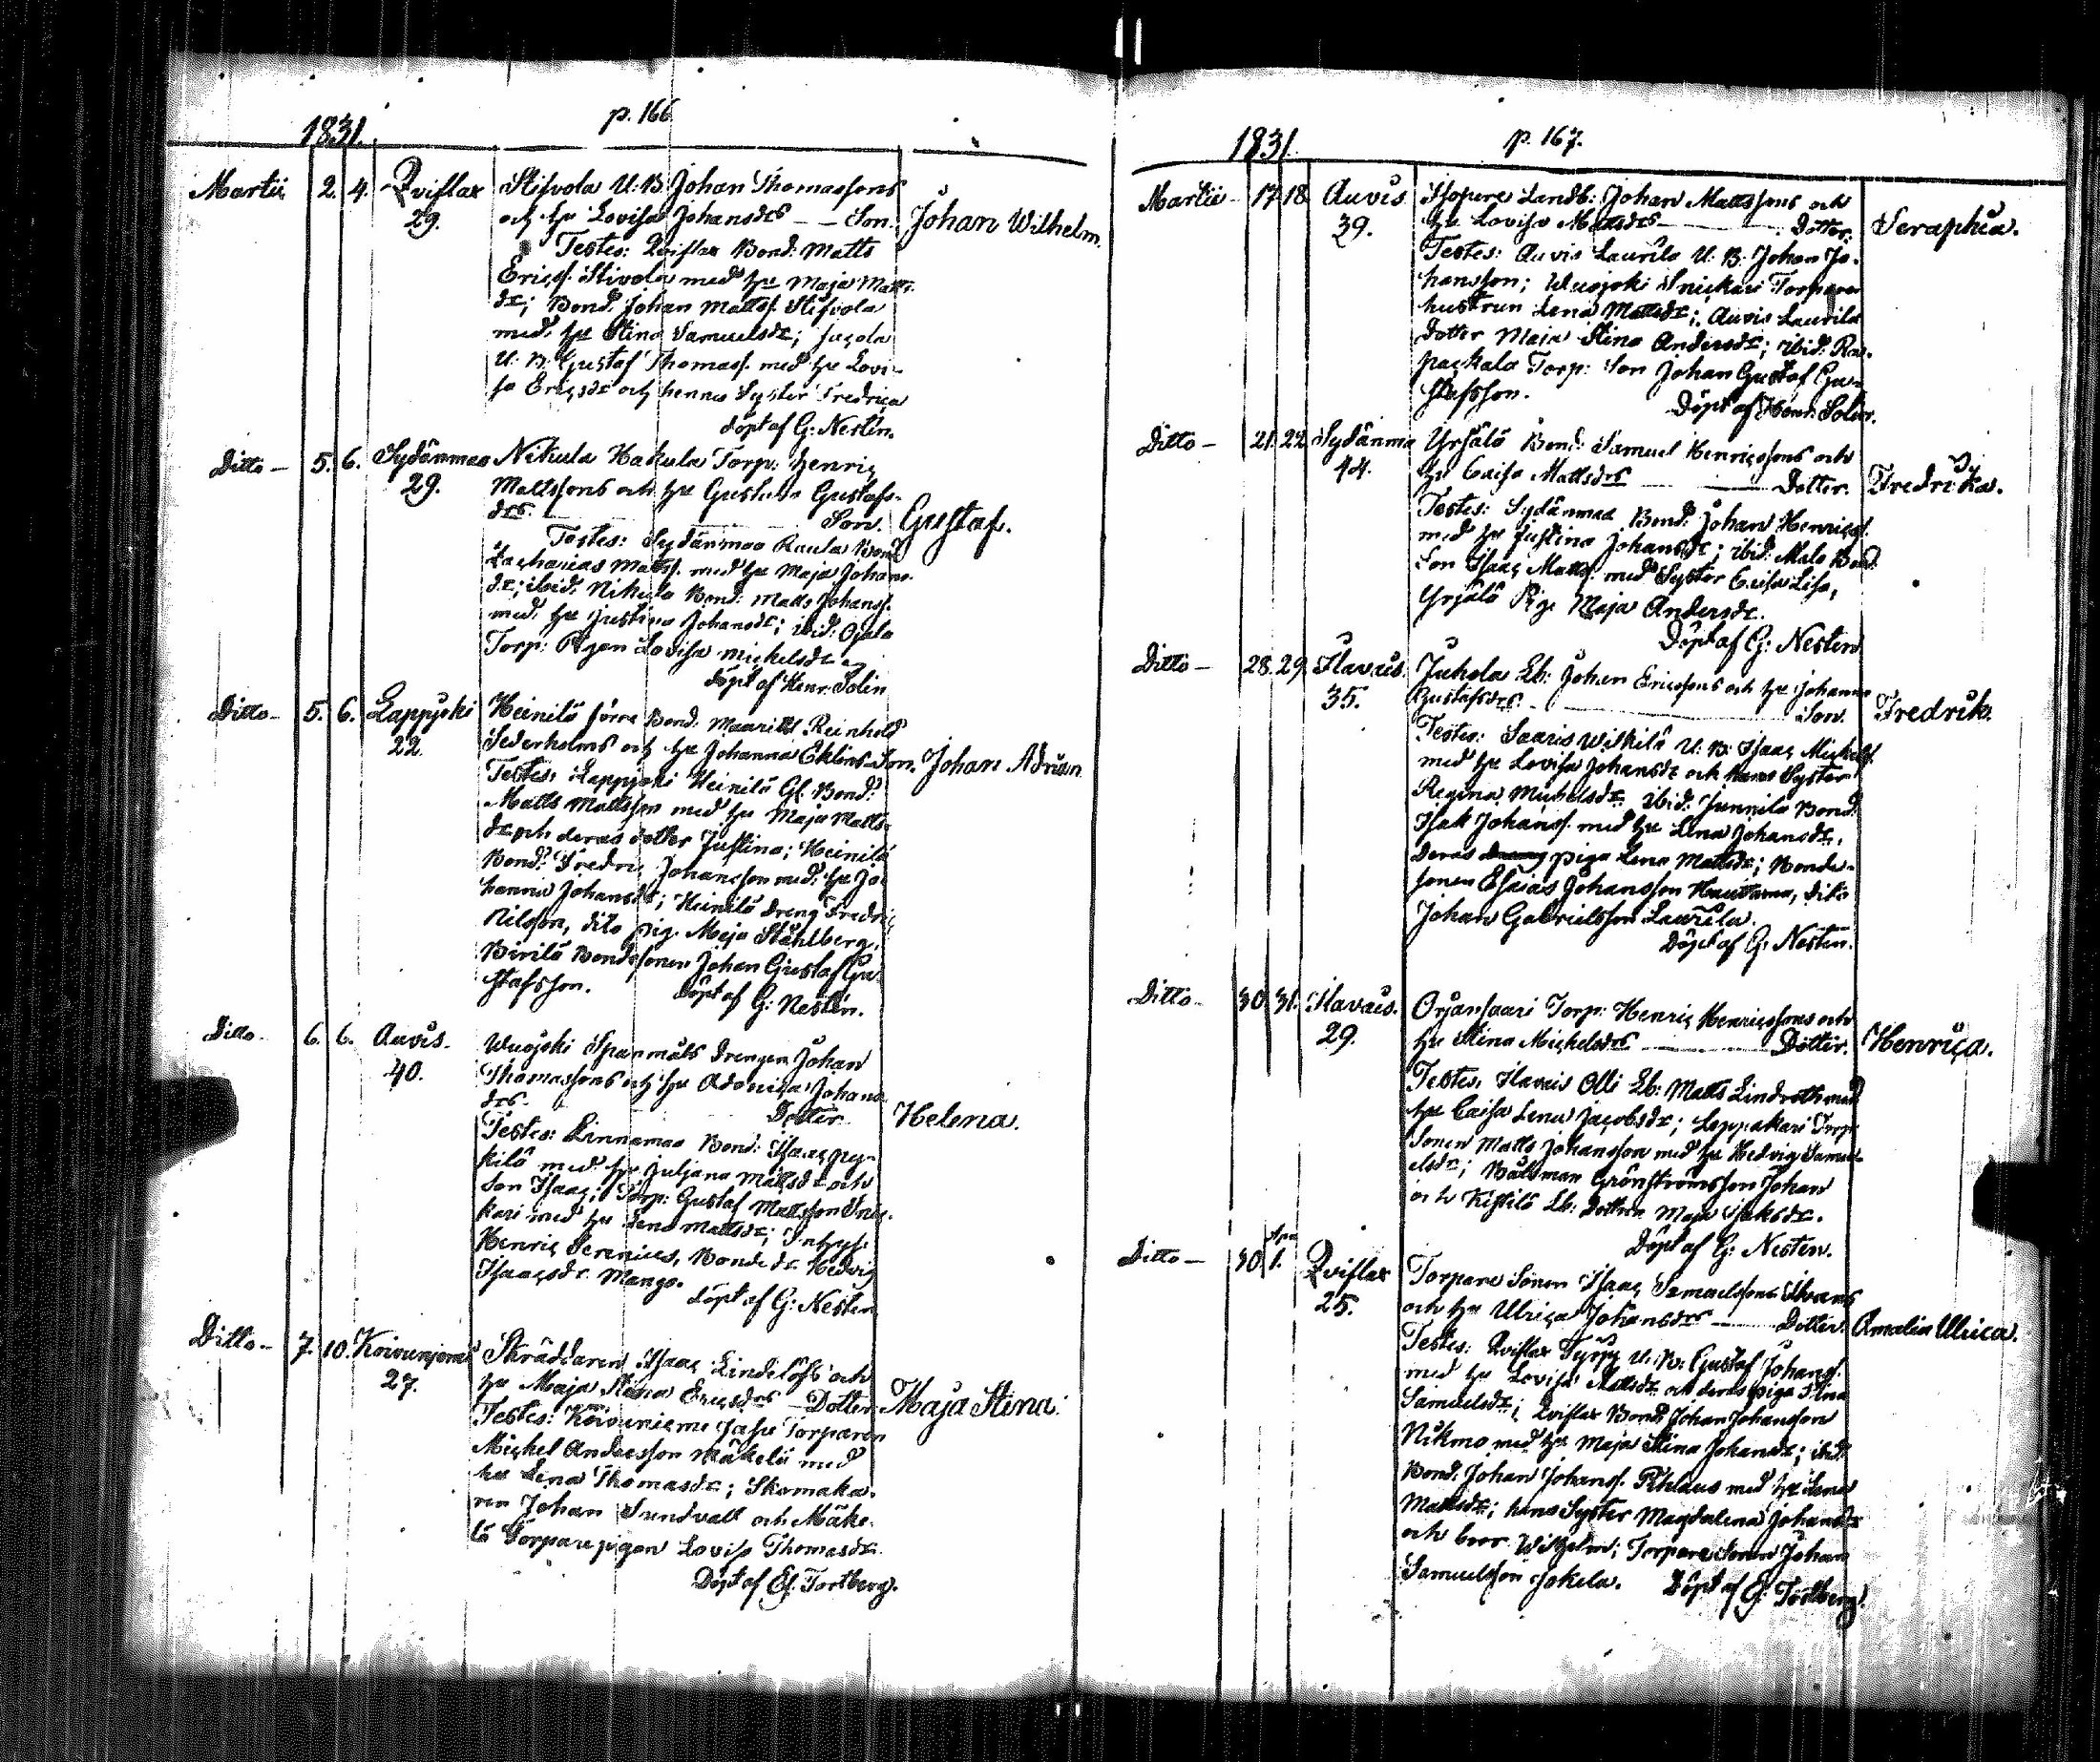 1831. p. 166
Martii 2. 4. Qviflax Stifvola U: B. Johan Thomassons
29. och hu Lovisa Johansdrs — Son. Johan Wilhelm.
Testes: Qviflax Bond: Matts
Ericss. Stivola med hu Maja Matts
dr; Bond. Johan Mattss. Stifvola
med hu Stina Samuelsdr; Jucola
U: B. Gustaf Thomass. med hu Lovi-
sa Ericsdr och hennes Syster Fredrica
döpt af G: Nestén.
Ditto — 5. 6. Sydänmaa Nikula Hakula Torp: Henric
29. Mattssons och hu Gustava Gustafs-
drs. Son. Gustaf.
Testes: Sydänmaa Raula Bond
Zacharias Matss. med hu Maja Johans-
dr; ibid. Nikula Bond: Matts Johanss.
med hu Justina Johansdr; ibid: Ojala
Torp: Pigan Lovisa Michelsdr
döpt af Henr: Solin
Ditto — 5. 6. Lappjoki Heinilä förre Bond. Mauritts Reinhold
22. Sederholms och hu Johanna Eklins Son. Johan Adrian
Testes, Lappjoki Heinilä Gl. Bond:
Matts Mattsson med hu Maja Matts-
dr och deras dotter Justina; Heinilä
Bond: Fredric Johansson med hu Jo-
hanna Johansdr; Heinilä Dreng Fredric
Nilsson, dito pig. Maja Ståhlberg,
Bondesonen Johan Gustaf Gu-
stafsson. Döpt af G: Nestén.
Ditto. 6. 6. Auvis. Wuojoki Spanmäls Drengen Johan
40. Thomassons och hu Johans
drs. Dotter. Helena.
Testes: Linnamaa Bond: Isaac Pyy-
kilä med hu Juliana Mattsdr och
Son Isaac; Torp: Gustaf Mattsson Snic-
kari med hu Lena Mattsdr; Inhys:
Henric Serenius, Bonde dr Hedvig
Isaacsdr Mango.
döpt af G: Nestén
Ditto — 7. 10. Koivuniemi Skräddaren Isaac Lindelöfs och
27. hu Maja Stina Ericsdrs — Dotter Maja Stina.
Testes: Koivuniemi Torparen
Michel Andersson Mäkelä med
hu Lena Thomasdr; Skomaka-
ren Johan Sundvall och Mäke-
lä Torparepigan Lovisa Thomasdr.
Döpt af Ef. Tortberg.
1831. p. 167.
Martii — 17. 18. Auvis Landb: Johan Mattssons och
39. hu Lovisa Mattsdrs — Dotter. Seraphia.
Testes: Auvis Laurila U: B: Johan Jo-
hansson; Wuojoki Snickari Torpare
hustrun Lena Mattsdr; Auvis Laurila
dotter Maja Stina Andersdr; ibid: Ra-
packala Torp: Son Johan Gustaf Gu-
stafsson.
Döpt af Henr: Solin.
Ditto — 21. 22. Sydänma Yrjälä Bond: Samuel Henricssons och
44. hu Caisa Mattsdrs — Dotter. Fredrika.
Testes: Sydänmaa Bond: Johan Henricss.
med hu Justina Johansdr; ibid: Malo Bond
Son Isaac Matss. med Syster Caisa Lisa,
Yrjälä Pig. Maja Andersdr.
Döpt af G: Nestén
Ditto — 28. 29. Ilavais. Juhola Lb: Johan Ericssons och hu Johanna
35. Gustafsdrs. Son. Fredrik.
Testes: Saaris Wilkilä U: B: Isaac Michelss.
med hu Lovisa Johansdr och hans Syster
Regina Michelsdr, ibid: Junnila Bond:
Isak Johanss. med hu Lena Johansdr,
deras piga Lena Mattsdr; Bonde-
sonen Esaias Johansson Hauttama, dito
Johan Gabrielsson Laurila.
Döpt af G: Nestén.
Ditto. 30. 31. Ilavais. Orjansaari Torp: Henric Henricssons och
29. hu Stina Michelsdrs — Dotter. Henrica.
Testes, Ilavais Olli Lb: Matts Lindroth med
hu Caisa Lena Jacobsdr; Leppakari Torp:
Sonen Matts Johansson med hu Hedvig Samu-
elsdr; Båtsman Grönströms son Johan
och Kistilä Lb: dottren Maja Isaksdr.
Döpt af G: Nesten.
Ditto — 30. Apr 1. Qviflax Torpare Sonen Isaac Samuelssons
25. och hu Ulrica Johansdrs — Dotter. Amalia Ulrica.
Testes: Qviflax Tyrry U: B: Gustaf Johanss.
med hu Lovisa Mattsdr och deras piga Stina
Samuelsdr; Qviflax Bond: Johan Johansson
Nikmo med hu Maja Stina Johansdr; ibid:
Bond. Johan Johanss. med hu Lena
Mattsdr; hans Syster Magdalena Johansdr
och bror Wilhelm; Torpare Sonen Johan
Samuelsson Jokela. Döpt af Ef: Tortberg.